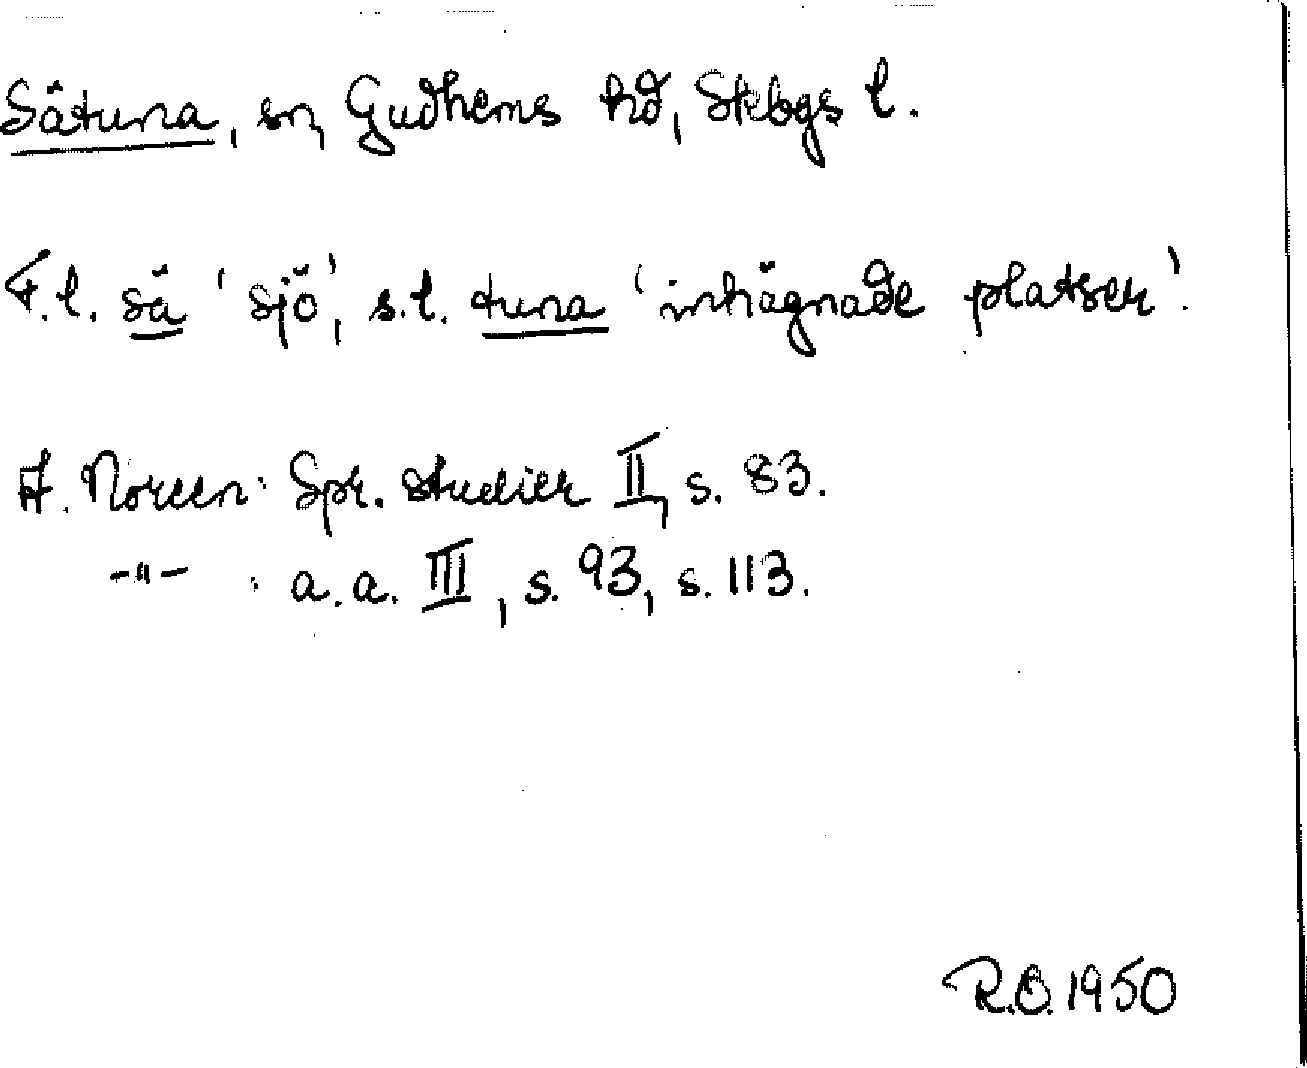 Sätuna, sn, Gudhems hd, Skbgs l.
F.l. sä 'sjö', s.l. tuna 'inhägnade platser'.
A. Noreen: Spr. studier II, s. 83.
-"- : a.a. III, s. 93, s. 113.
R.O. 1950